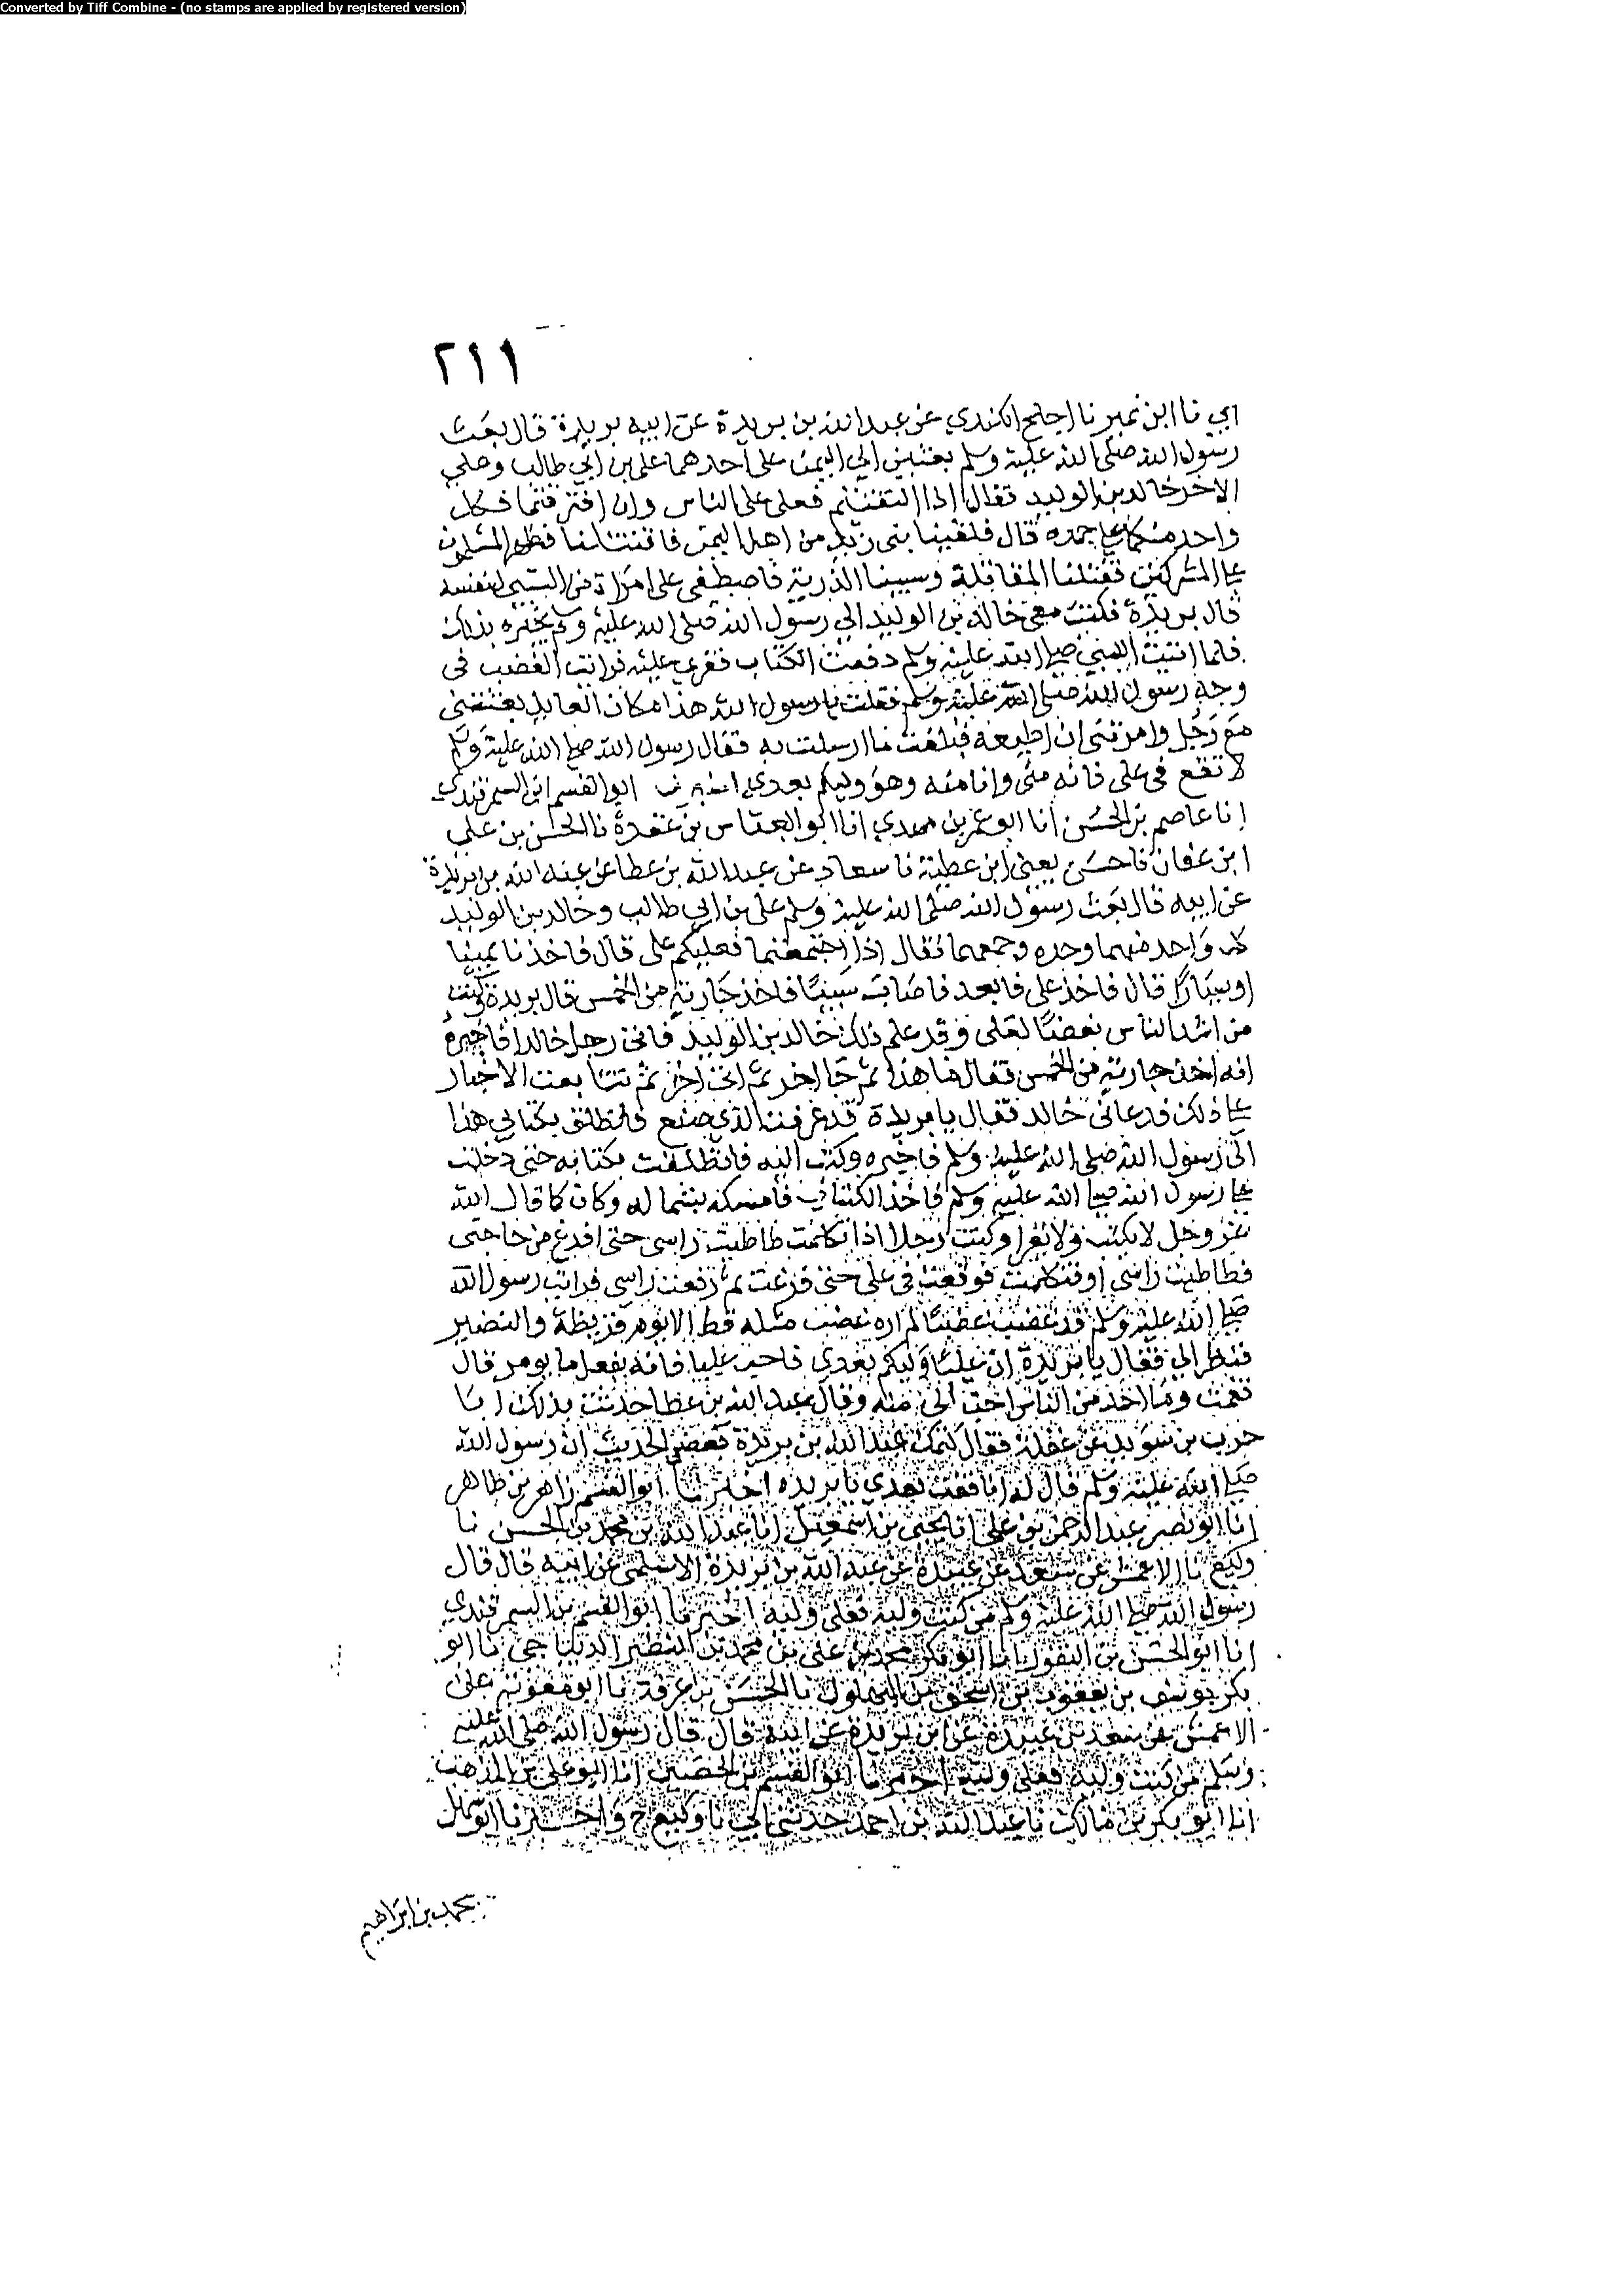 Converted by Tiff Combine - (no stamps are applied by registered version)
٢١١
ابي نا ابن نمير نا اجلح الكندي عن عبد الله بن بريدة عن ابيه بريدة قال بعث
رسول الله صلى الله عليه وسلم بعثين الى اليمن على احدهما على بن ابي طالب وعلى
الاخر خالد بن الوليد فقال اذا التقيتم فعلى على الناس وان افترقتما فكل
واحد منكما على جنده قال فلقينا بنى زيد من اهل اليمن فاقتتلنا فظهر المسلمون
على المشركين فقتلنا المقاتلة وسبينا الذرية فاصطفى على امراة من السبي لنفسه
قال بريدة فكتب معي خالد بن الوليد الى رسول الله صلى الله عليه وسلم يخبره بذلك
فلما اتيت النبي صلى الله عليه وسلم دفعت الكتاب فقرى عليه فرايت الغضب فى
وجه رسول الله صلى الله عليه وسلم فقلت يا رسول الله هذا مكان العايذ بعثتنى
مع رجل وامرتنى ان اطيعه فبلغت ما ارسلت به فقال رسول الله صلى الله عليه وسلم
لا تقع فى على فانه منى وانا منه وهو وليكم بعدي اخبرنا ابو القسم ابن السمرقندي
انا عاصم بن الحسن انا ابو عمر بن مهدي انا ابو العباس بن عقدة نا الحسن بن على
ابن عفان نا حسن يعنى ابن عطية نا سعاد عن عبد الله بن عطا عن عبد الله بن بريدة
عن ابيه قال بعث رسول الله صلى الله عليه وسلم على بن ابي طالب وخالد بن الوليد
كل واحد منهما وحده وجمعهما فقال اذا اجتمعتما فعليكم على قال فاخذنا يمينا
او يسارا قال فاخذ على فابعد فاصاب سبيا فاخذ جارية من الخمس قال بريدة وكنت
من اشد الناس بغضا لعلى وقد علم ذلك خالد بن الوليد فاتى رجل خالدا فاخبره
انه اخذ جارية من الخمس فقال ما هذا ثم جا اخر ثم اتى اخر ثم تتابعت الاخبار
على ذلك فدعانى خالد فقال يا بريدة قد عرفت الذي صنع فانطلق بكتابي هذا
الى رسول الله صلى الله عليه وسلم فاخبره وكتب اليه فانطلقت بكتابه حتى دخلت
على رسول الله صلى الله عليه وسلم فاخذ الكتاب فامسكه بشماله وكان كما قال الله
عز وجل لا يكتب ولا يقرا وكنت رجلا اذا تكلمت طاطات راسى حتى افرغ من حاجتى
فطاطيت راسى او فتكلمت فوقعت فى على حتى فرغت ثم رفعت راسى فرايت رسول الله
صلى الله عليه وسلم قد غضب غضبا لم اره غضب مثله قط الا يوم قريظة والنضير
فنظر الي فقال يا بريدة ان عليا وليكم بعدي فاحب عليا فانه يفعل ما يومر قال
فقمت وما احد من الناس احب الى منه وقال عبد الله بن عطا حدثت بذلك ابا
حرب بن سويد بن غفلة فقال كتمك عبد الله بن بريدة بعض الحديث ان رسول الله
صلى الله عليه وسلم قال له انافقت بعدي يا بريدة اخبرنا ابو القسم زاهر بن طاهر
انا ابو نصر عبد الرحمن بن على انا يحيى بن اسمعيل انا عبد الله بن محمد بن الحسن نا
وكيع نا الاعمش عن سعد بن عبيدة عن عبد الله بن بريدة الاسلمى عن ابيه قال قال
رسول الله صلى الله عليه وسلم من كنت وليه فعلى وليه اخبرنا ابو القسم بن السمرقندي
انا ابو الحسين بن النقور انا ابو بكر محمد بن على بن محمد بن النضر الديباجى نا ابو
بكر يوسف بن يعقوب بن اسحق بن البهلول نا الحسن بن عرفة نا ابو معوية عن
الاعمش عن سعد بن عبيدة عن ابن بريدة عن ابيه قال قال رسول الله صلى الله عليه
وسلم من كنت وليه فعلى وليه اخبرنا ابو القسم بن الحصين انا ابو على بن المذهب
انا ابو بكر بن مالك نا عبد الله بن احمد حدثنى ابي نا وكيع ح واخبرنا ابو سهل
محمد بن ابراهيم